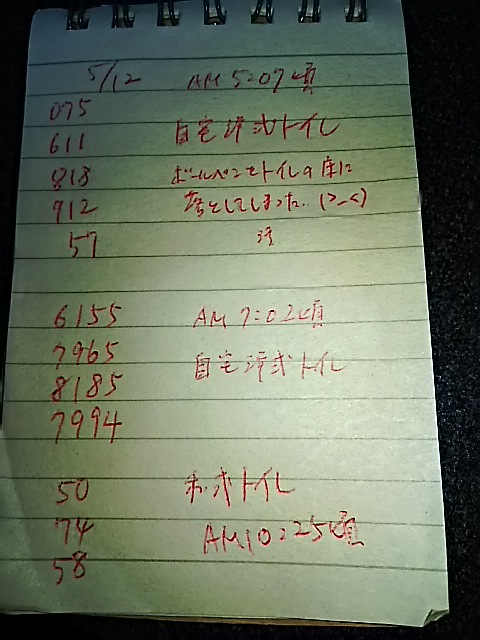 5/12 AM5:07頃
075
611 自宅洋式トイレ
818 ボールペンをトイレの床に
912 落としてしまった..(>_<)
57
6155 AM 7:02頃
7965 自宅洋式トイレ
8185
7994
50 和式トイレ
74 AM10:25頃
58